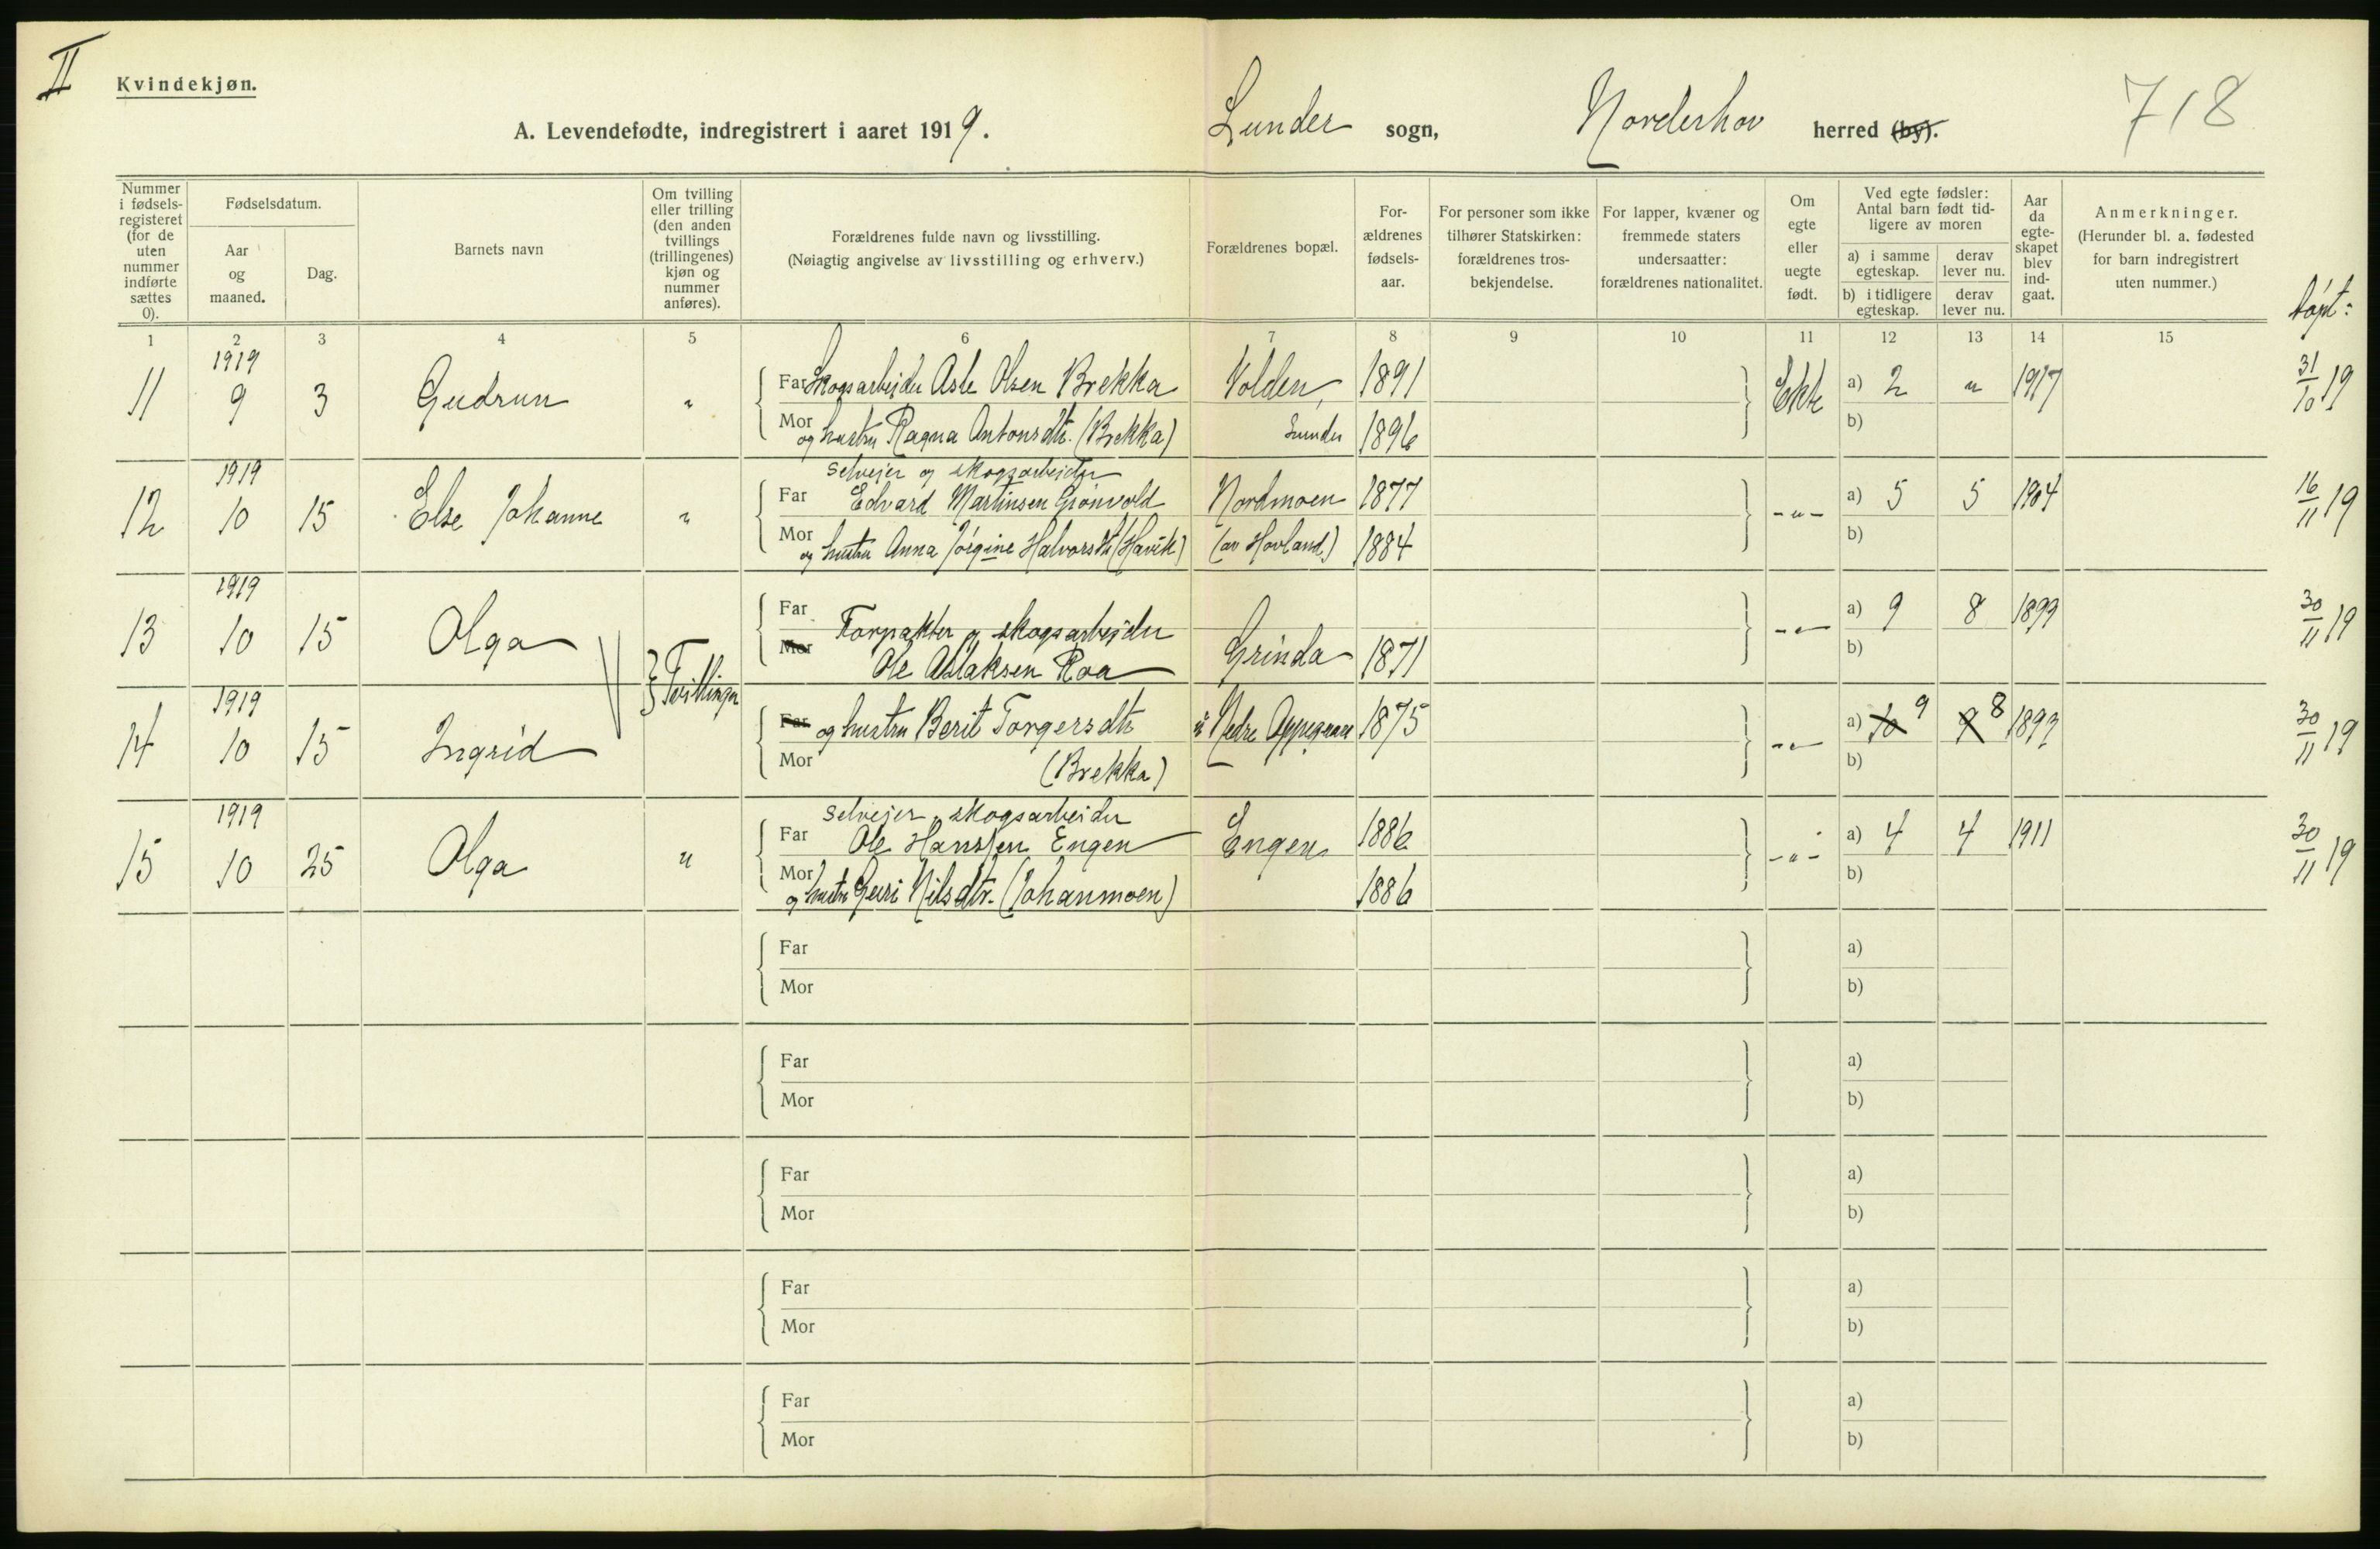 II
Kvindekjøn.
A. Levendefødte, indregistrert i aaret 1919. Lunder sogn, Norderhov herred (by). 718
Nummer i fødselsregisteret (for de uten nummer indførte sættes 0).
Fødselsdatum.
Aar og maaned.
Dag.
Barnets navn
Om tvilling eller trilling (den anden tvillings (trillingenes) kjøn og nummer anføres).
Forældrenes fulde navn og livsstilling.
(Nøiagtig angivelse av livsstilling og erhverv.)
Forældrenes bopæl.
Forældrenes fødselsaar.
For personer som ikke tilhører Statskirken: forældrenes trosbekjendelse.
For lapper, kvæner og fremmede staters undersaatter: forældrenes nationalitet.
Om egte eller uegte født.
Ved egte fødsler: Antal barn født tidligere av moren
a) i samme egteskap.
derav lever nu.
b) i tidligere egteskap.
derav lever nu.
Aar da egteskapet blev indgaat.
Anmerkninger.
(Herunder bl. a. fødested for barn indregistrert uten nummer.)
døpt:
1 2 3 4 5 6 7 8 9 10 11 12 13 14 15
1919
11 9 3 Gudrun " Far Skogsarbejder Asle Olsen Brekka Volden, 1891 Ekte a) 2 " 1917 31/10 19
Mor og hustru Ragna Antonsdtr. (Brekka) Lunder 1896 b)
1919 selvejer og skogsarbejder
12 10 15 Else Johanne " Far Edvard Martinsen Grønvold Nordmoen 1877 -"- a) 5 5 1904 16/11 19
Mor og hustru Anna Jørgine Halvorsdtr (Havik) (av Hovland) 1884 b)
1919
13 10 15 Olga Tvillinger Far Forpakter og skogsarbejder -"- a) 9 8 1899 30/11 19
Mor Ole Aslaksen Roa Grinda 1871 b)
1919
14 10 15 Ingrid Far og hustru Berit Torgersdtr Nedre 1875 -"- a) 10 9 9 8 1899 30/11 19
Mor (Brekka) b)
1919 selvejer, skogsarbeider
15 10 25 Olga " Far Ole Hanssen Engen Engen 1886 -"- a) 4 4 1911 30/11 19
Mor og hustru Guri Nilsdtr. (Johanmoen) 1886 b)
Far a)
Mor b)
Far a)
Mor b)
Far a)
Mor b)
Far a)
Mor b)
Far a)
Mor b)